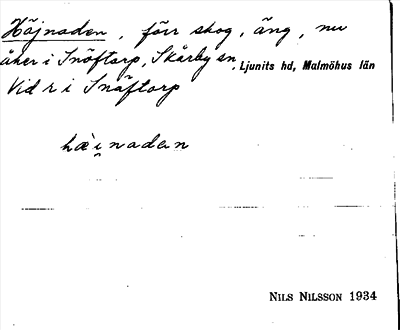 Häjnaden, förr skog, äng, nu
åker i Snäftorp, Skårby sn, Ljunits hd, Malmöhus län
Vid r i Snäftorp
hæ̀i̯nadən
NILS NILSSON 1934